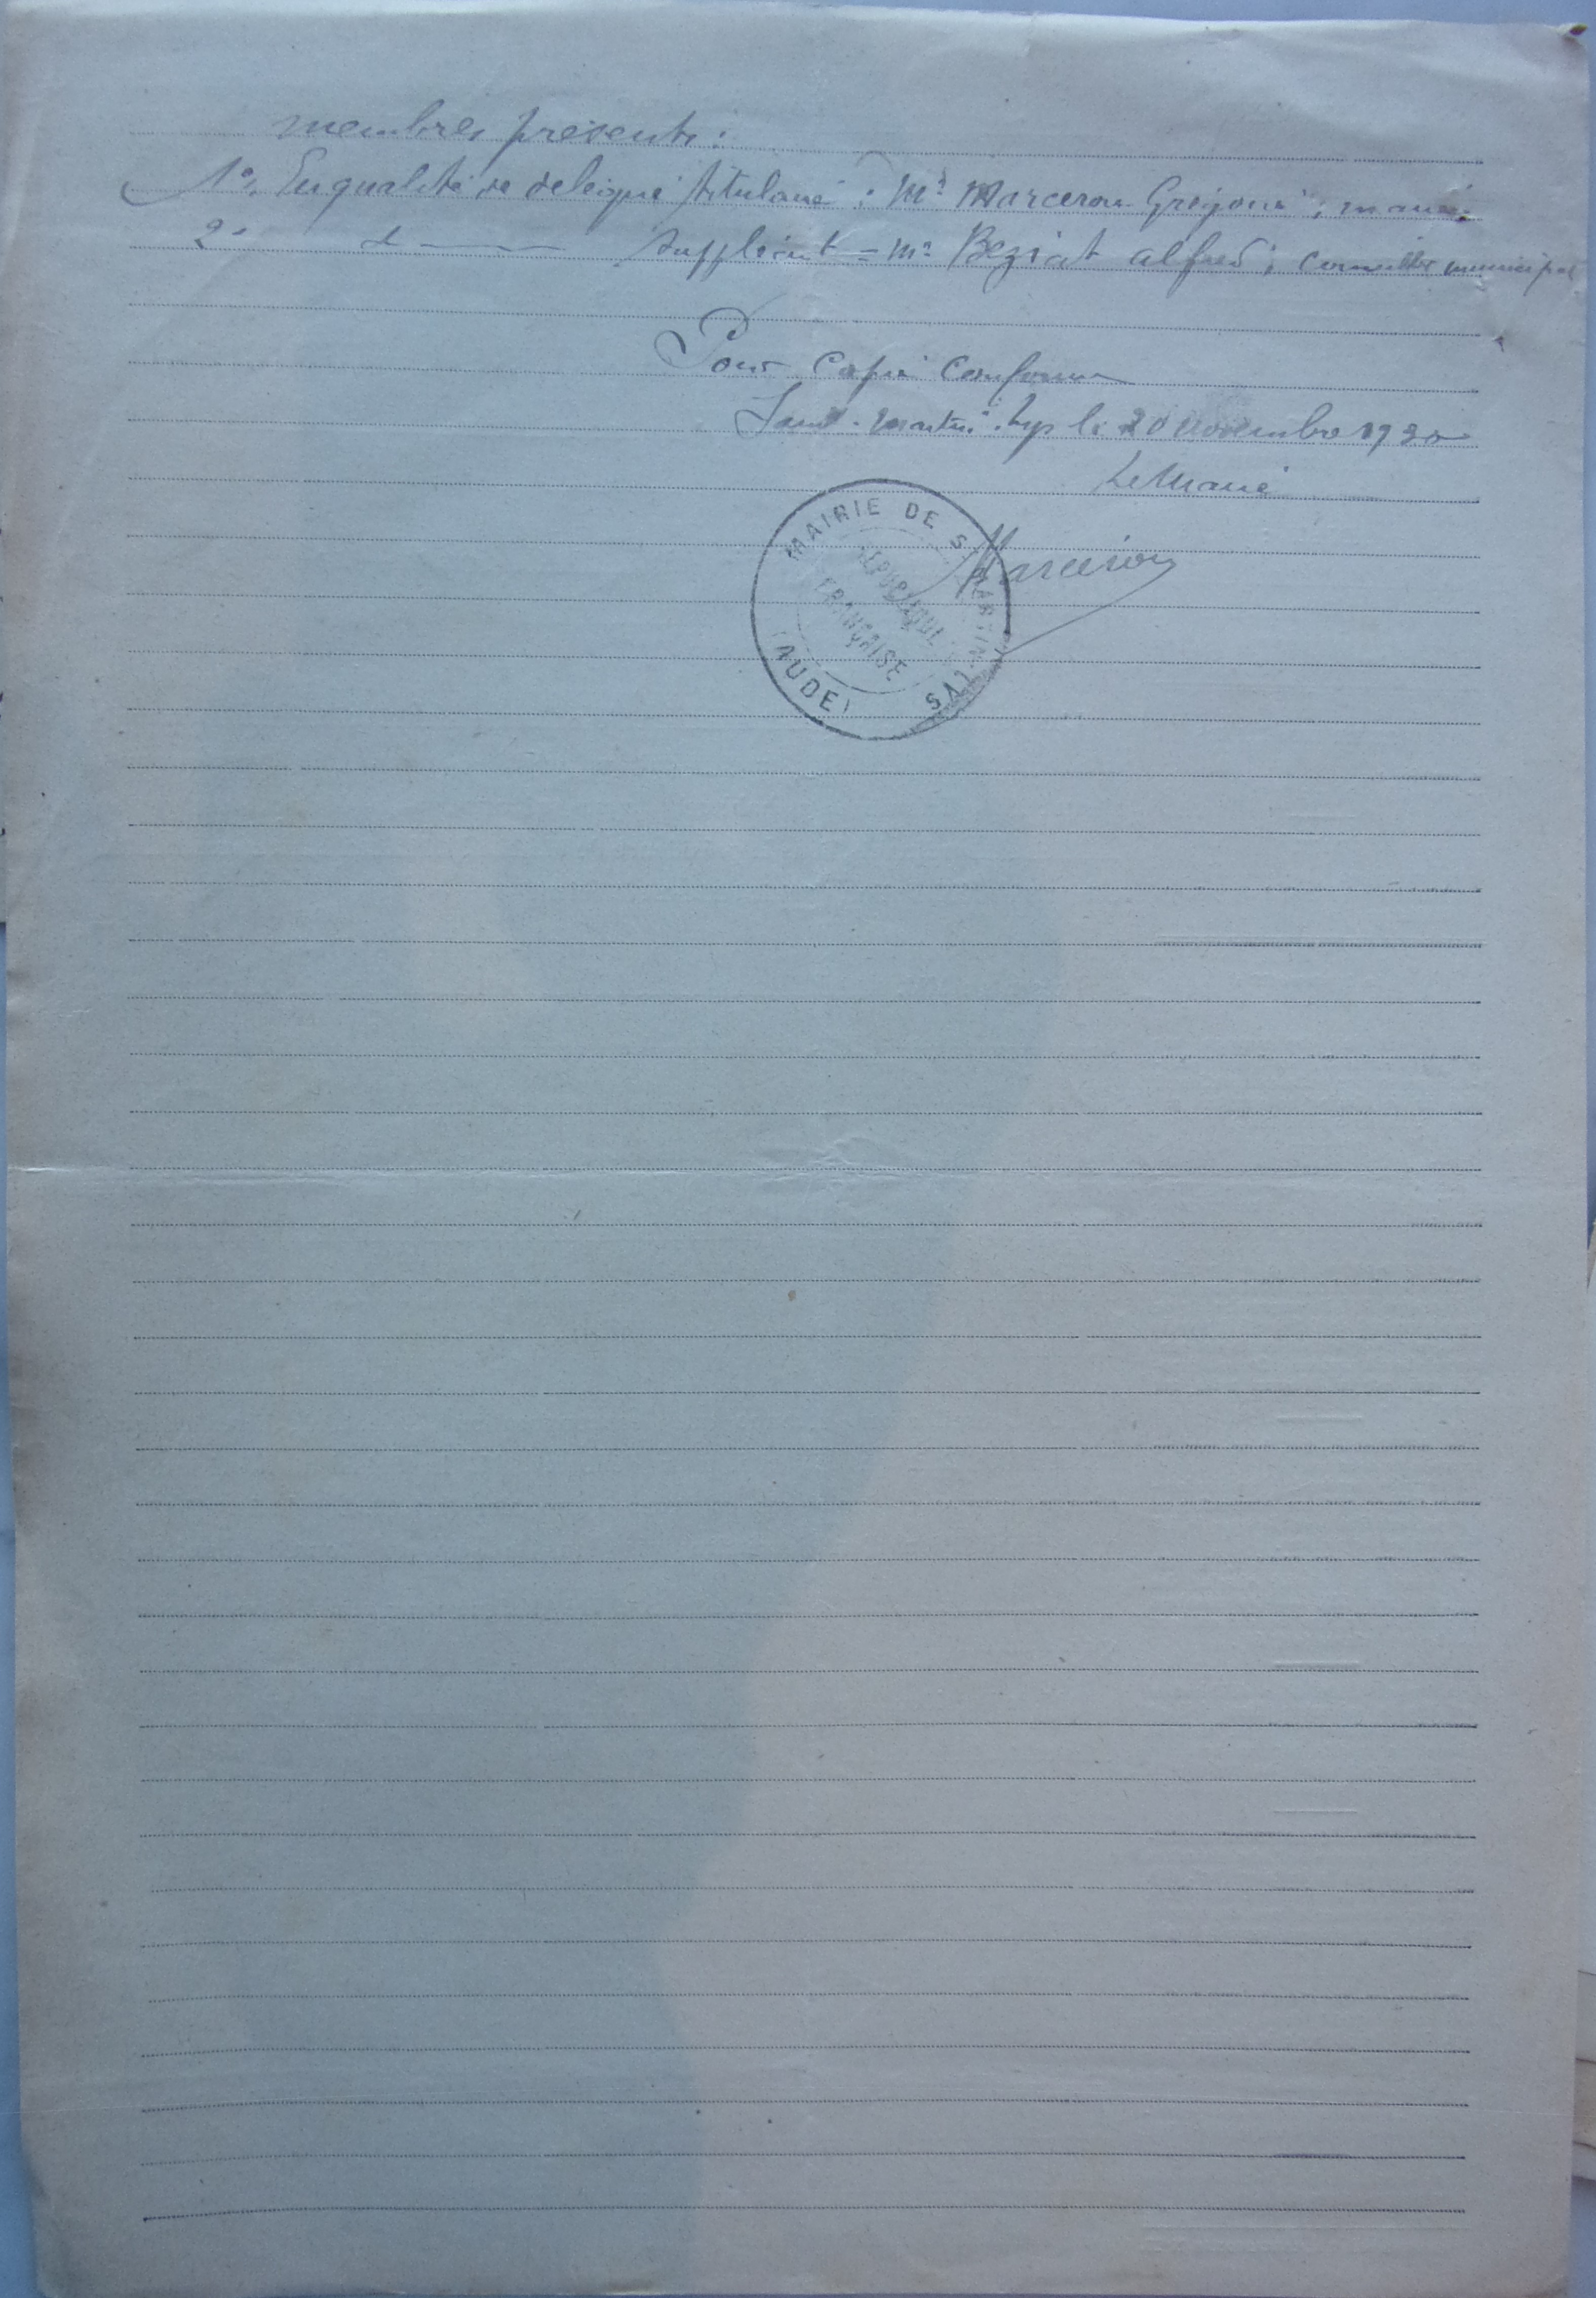 membres présents :
1°. En qualité de délégué titulaire : Mr Marcerou Grégoire, maire
2° d° suppléant = Mr Beziat alfred, conseiller municipal
Pour Copie Conforme
Saint-Martin-Lys le 20 Novembre 1920
Le Maire
Marcerou
MAIRIE DE St MARTIN
(AUDE)
RÉPUBLIQUE
FRANÇAISE